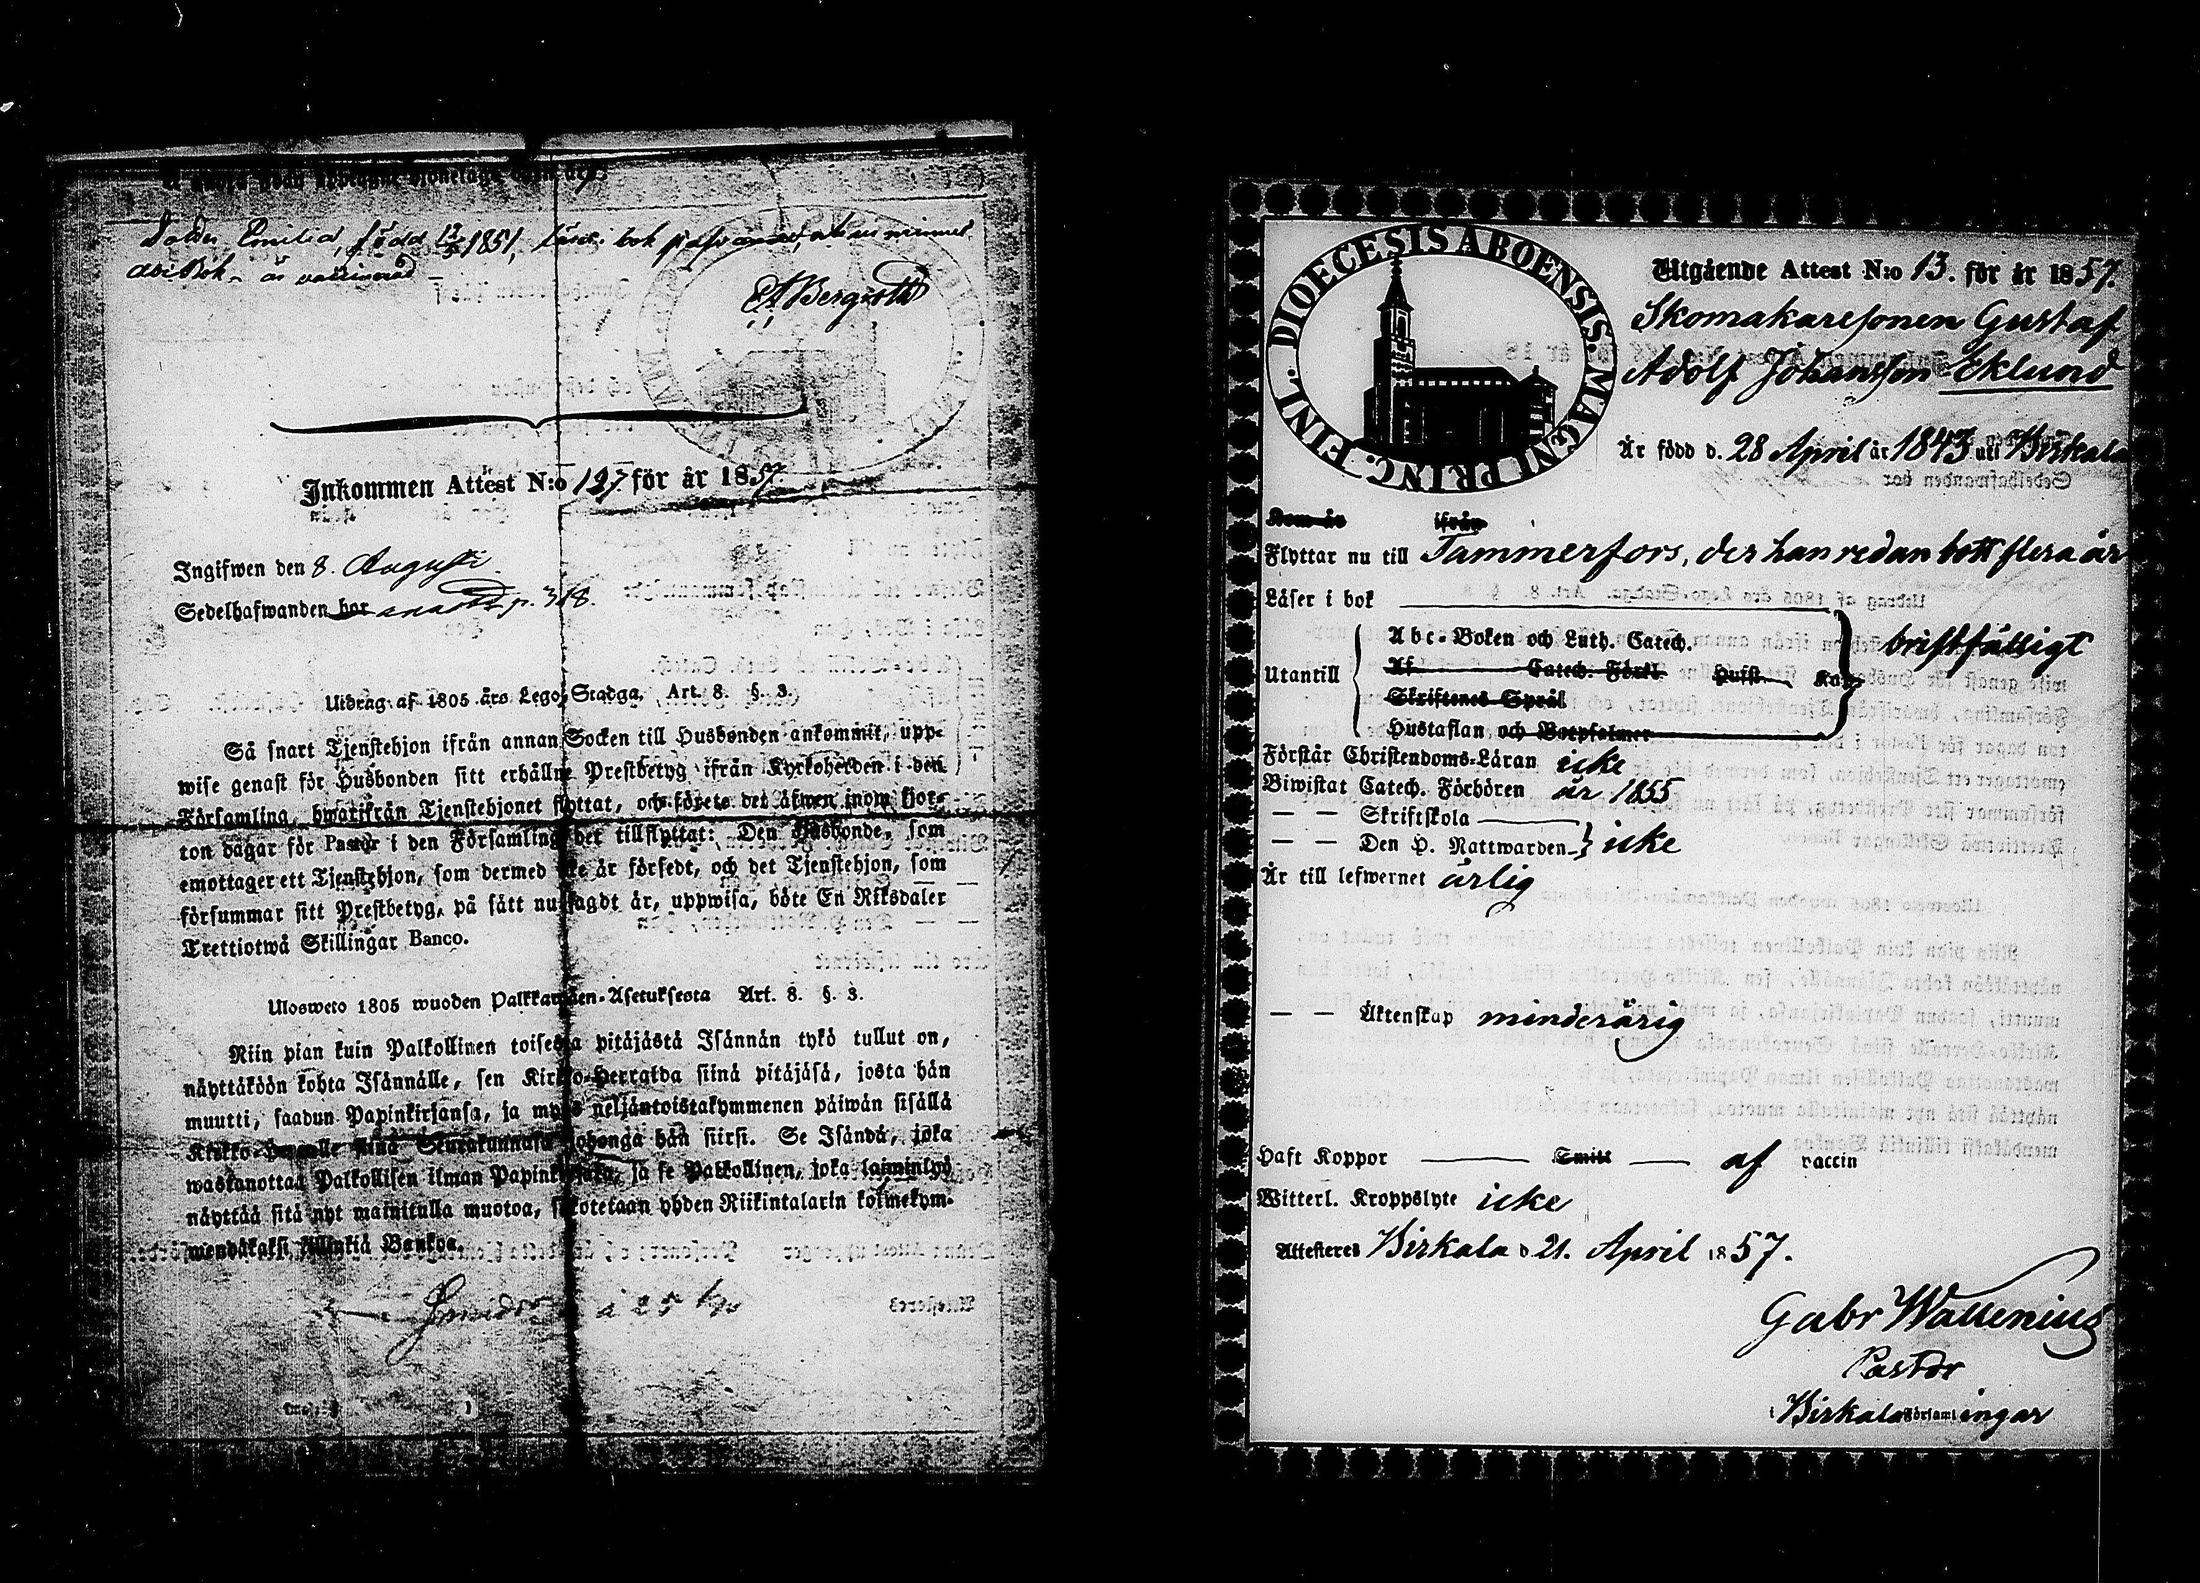 Dotter Emilia, född 12/5 1851, läser i bok
abcbok - är vaccinerad -
Bergroth
Inkommen Attest N:o 127. för år 1857.
Ingifwen den 8. Augusti.
Sedelhafwanden har p. 318.
Utdrag af 1805 års Lego-Stadga, Art. 8. §. 3.
Så snart Tjenstehjon ifrån annan Socken till Husbonden ankommit, upp-
wise genast för Husbonden sitt erhållne Prestbetyg ifrån Kyrkoherden i den
Församling, hwarifrån Tjenstehjonet flyttat, och förete det äfwen inom fjor-
ton dagar för Pastor i den Församling det tillflyttat: Den Husbonde, som
emottager ett Tjenstehjon, som dermed icke är försedt, och det Tjenstehjon, som
försummar sitt Prestbetyg, på sätt nu sagdt är, uppwisa, böte En Riksdaler
Trettiotwå Skillingar Banco.
Ulosweto 1805 wuoden Palkkawäen-Asetuksesta Art. 8. §. 3.
Niin pian kuin Palkollinen toisesta pitäjästä Isännän tykö tullut on,
näyttäköön kohta Isännälle, sen Kirkko-Herralda siinä pitäjäsä, josta hän
muutti, saadun Papinkirjansa, ja myös neljäntoistakymmenen päiwän sisällä
Kirkko-Herralle siinä Seurakunnasa johonga hän siirsi. Se Isändä, joka
wastanottaa Palkollisen ilman Papinkirjata, ja se Palkollinen, joka laiminlyö
näyttää sitä nyt mainitulla muotoa, sakotetaan yhden Riikintalarin kolmekym-
mendäkaksi killinkiä Bankoa.
DIOECESIS ABOENSIS. MAGNI PRINC. FINL.
Utgående Attest N:o 13. för år 1857.
Skomakaresonen Gustaf
Adolf Johansson Eklund
Är född d. 28 April år 1843 uti Birkala
Kom år ifrån
Flyttar nu till Tammerfors, der han redan bott flera år
Läser i bok
Abc-Boken och Luth. Catech. bristfälligt
Utantill Af Catech. Förkl. Hufst. Kap.
Skriftenes Språk
Hustaflan och Botpsalmer
Förstår Christendoms-Läran icke
Biwistat Catech. Förhören år 1855
— — Skriftskola
— — Den H. Nattwarden icke
Är till lefwernet ärlig
— — Äktenskap minderårig
Haft Koppor Smitt af vaccin
Witterl. Kroppslyte icke
Attesteres Birkala d. 21. April 1857.
Gabr Wallenius
Pastor
i Birkala Församlingar